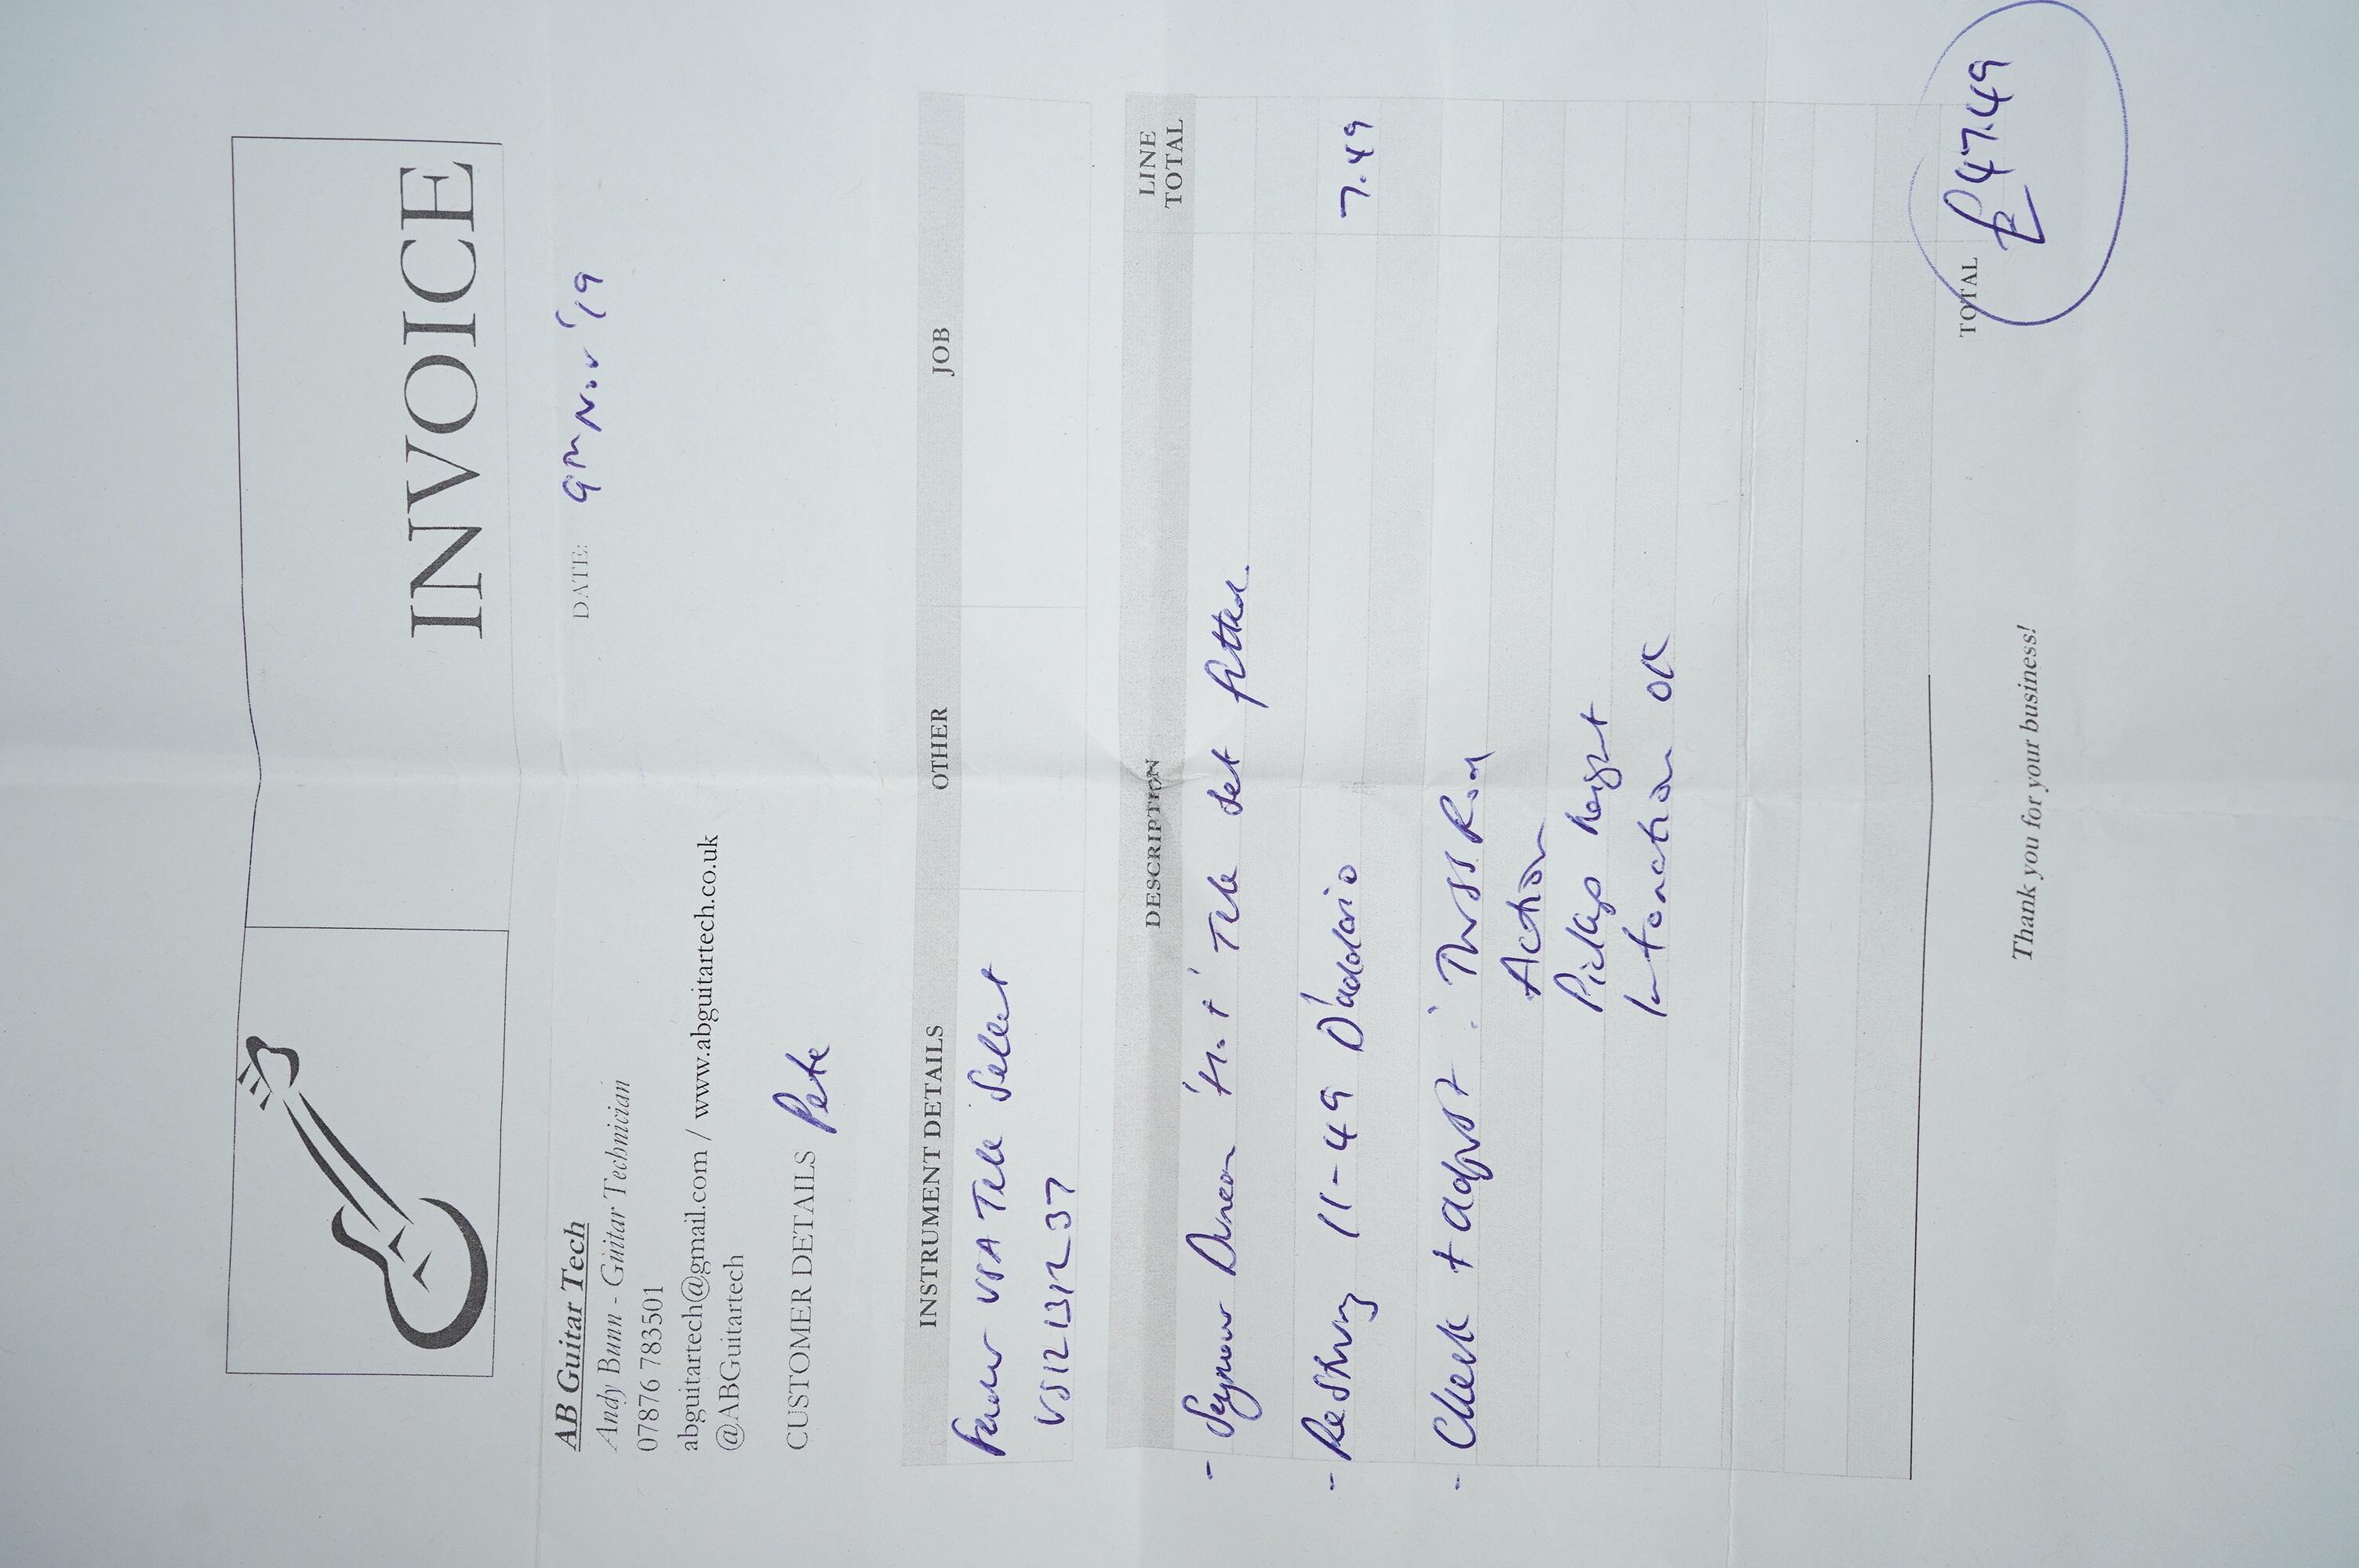 INVOICE
AB Guitar Tech
DATE: 9th Nov '19
Andy Bunn - Guitar Technician
07876 783501
abguitartech@gmail.com / www.abguitartech.co.uk
@ABGuitartech
CUSTOMER DETAILS Pete
INSTRUMENT DETAILS OTHER JOB
Fender USA Tele Select
US12131237
DESCRIPTION LINE TOTAL
- Seymour Duncan 'Hot' Tele set fitted.
- Restring 11-49 D'addario 7.49
- Check + adjust : Truss Rod
Action
Pickup height
Intonation OK
TOTAL £47.49
Thank you for your business!